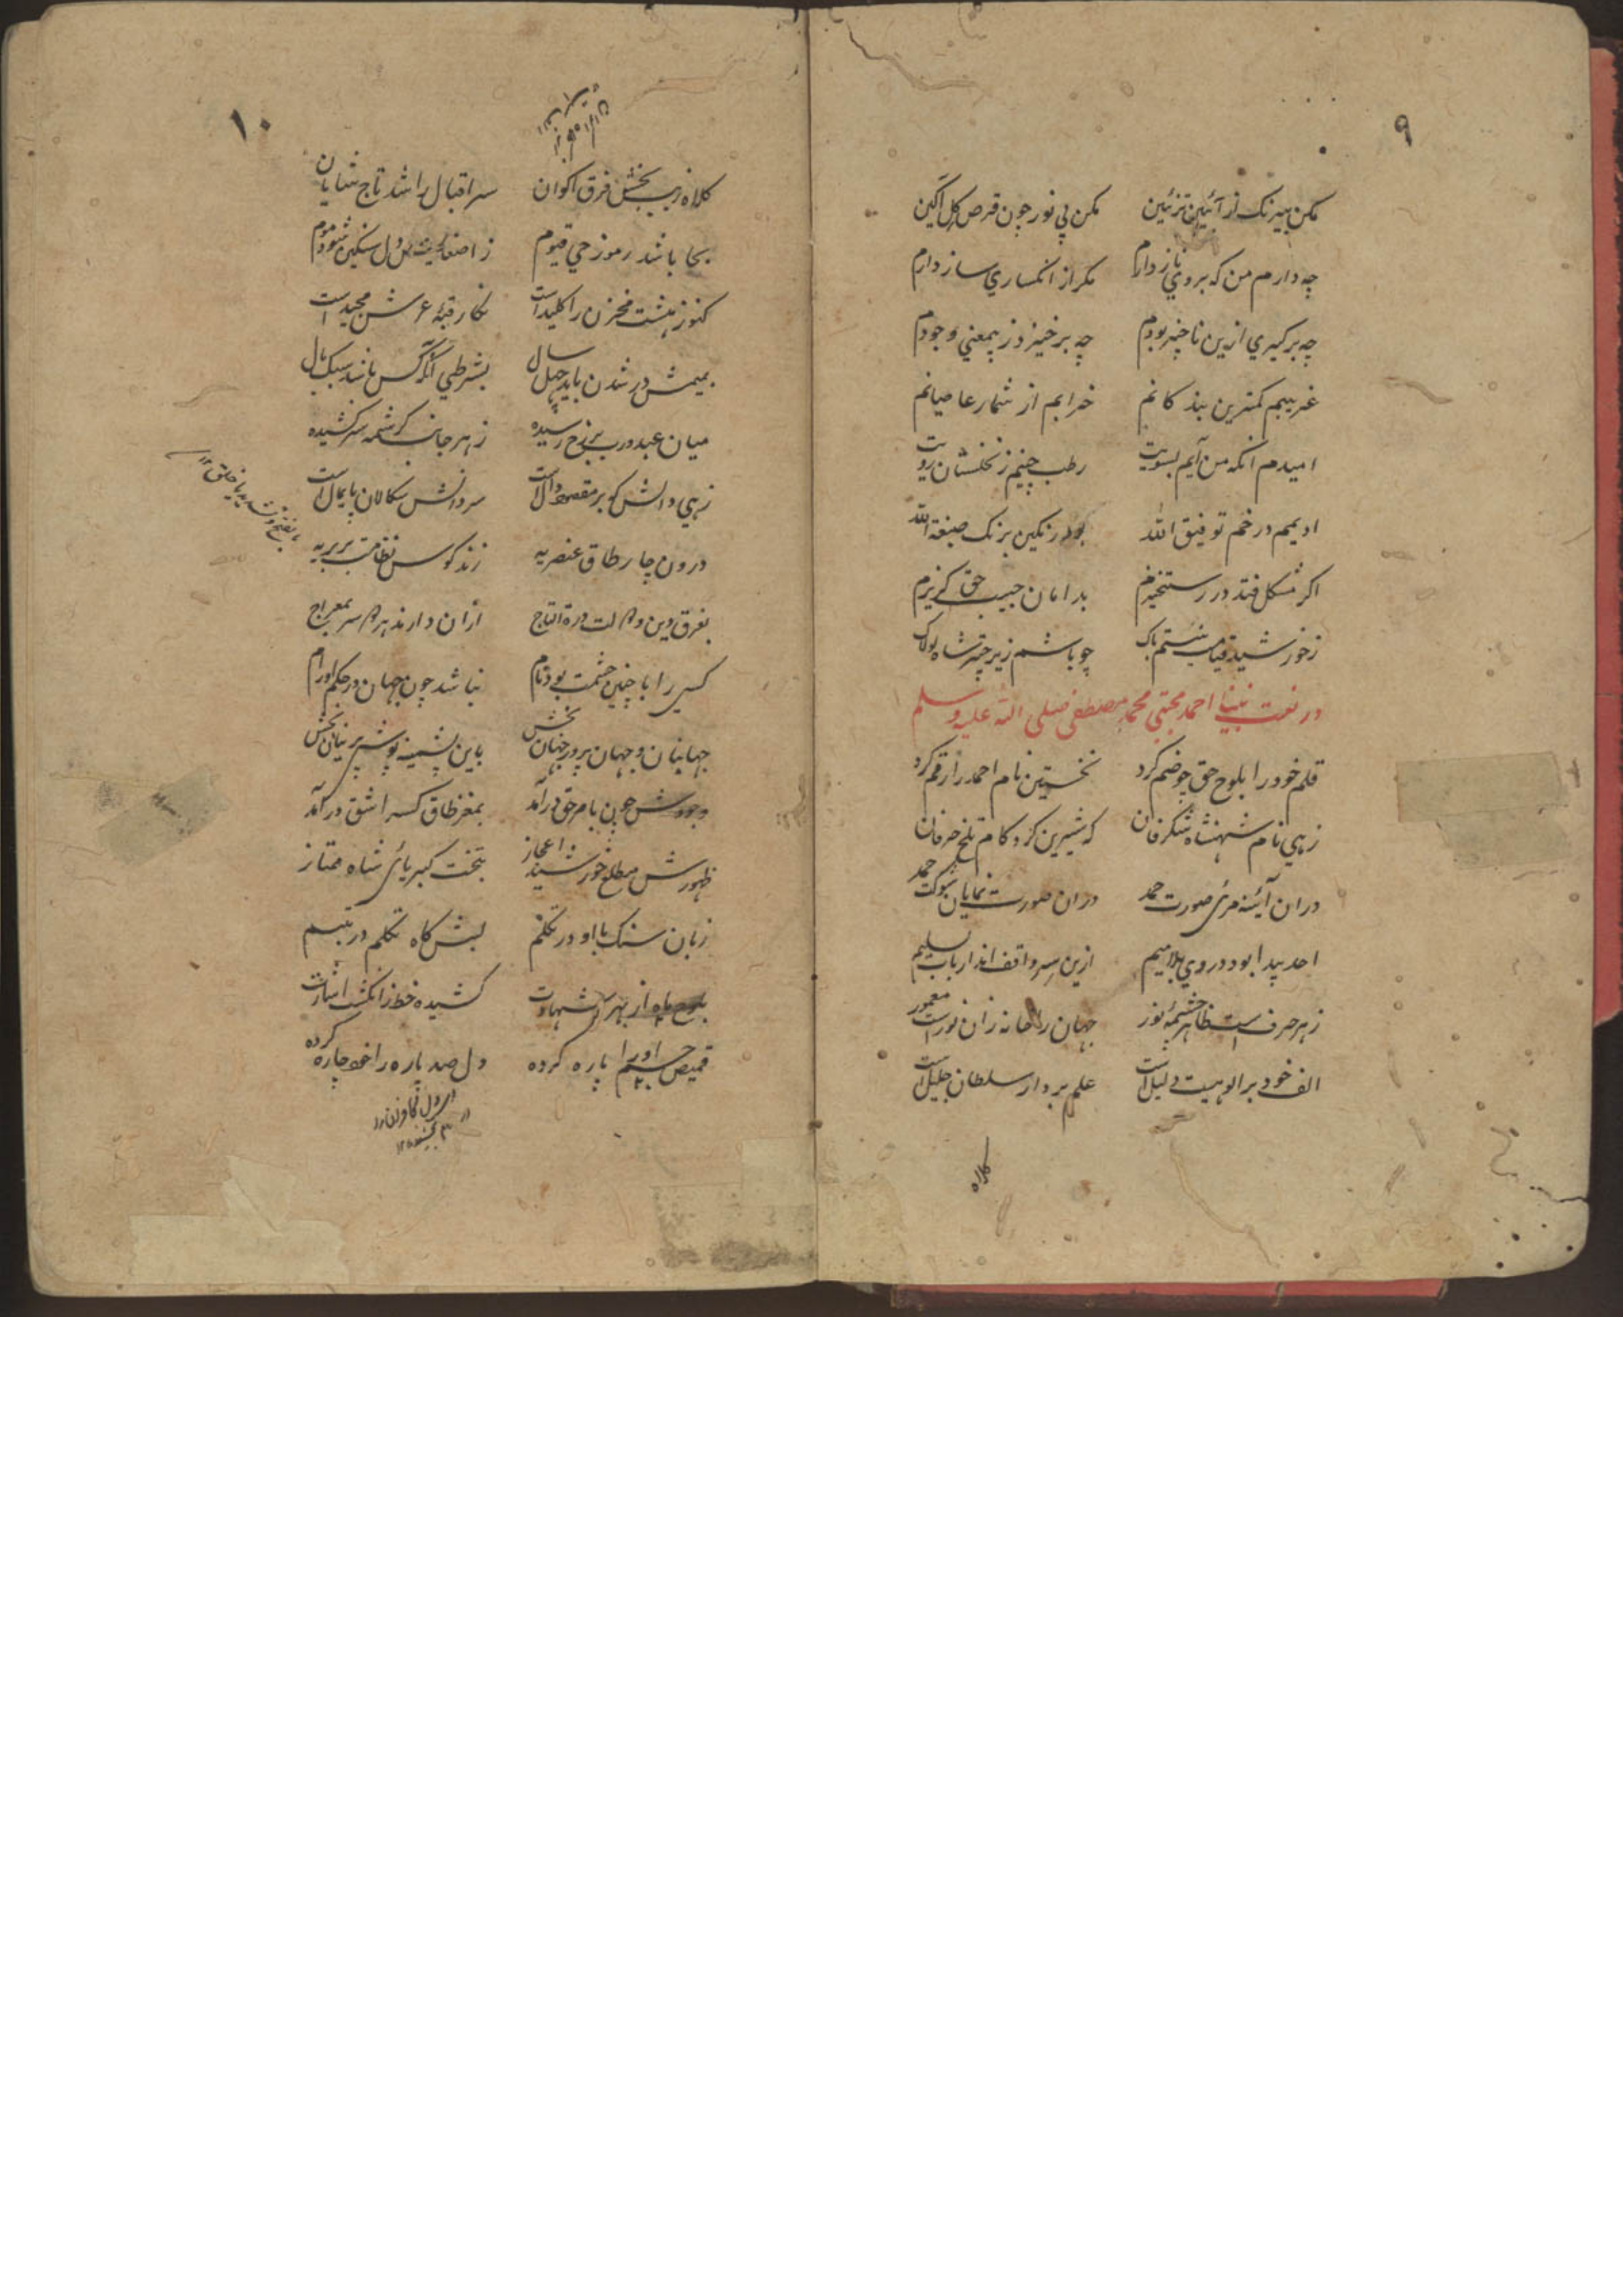 ۹
مکن بیرنک از آئین تزئین مکن بی نور چون قرص کل آکین
چه دارم من که بر وی ناز دارم مکر از انکساری ساز دارم
چه برکیری ازین ناچیز بودم چه برخیزد ز بیمعنی وجودم
غریبم کمترین بندکانم خرابم از شمار عاصیانم
امیدم انکه من آیم بسویت رطب چینم ز نخلستان رویت
ادیمم در خم توفیق الله بود رنکین برنک صبغة الله
اکر مشکل فتد در رستخیزم بدامان حبیب حق کریزم
ز خورشید قیامت نیستم باک چو باشم زیر چتر شاه لولاک
در نعت نبینا احمد مجتبی محمد مصطفی صلی الله علیه وسلم
قلم خود را بلوح حق چو ضم کرد نخستین نام احمد را رقم کرد
زهی نام شهنشاه شکرفان که شیرین کرد کام تلخ حرفان
دران آئینه مرئی صورت حمد دران صورت نمایان شوکت حمد
احد پیدا بود در وی بلا میم ازین سر واقف اند ارباب تسلیم
ز هر حرف است ظاهر چشمهٔ نور جهان را خانه زان نور است معمور
الف خود بر الوهیت دلیل است علم بردار سلطان جلیل است
کلاه
۱۰
کلاه زیب بخش فرق اکوان سر اقبال را شد تاج شایان
بحا باشد رموز حی قیوم ز اصغایت دل سنکین شود موم
کنوز هشت مخزن را کلید است نکار قبهٔ عرش مجید است
بمیمش در شدن باید چهل سال بشرطی آنکه کس باشد سبک بال
میان عبد و رب برزخ رسیده ز هر جانب کرشمه سر کشیده
زهی دالش که بر مقصود دال است سر دانش سکالان پایمال است
درون چار طاق عنصریه زند کوس نظامت بر بریه
بفرق دین و دولت درة التاج ازان دارند هر دم سر بمعراج
کسی را با چنین حشمت بود نام نباشد چون جهان در حکم او رام
جهانبان و جهان پرور جهان بخش باین پشمینه پوشی پرنیان بخش
وجودش چون بامر حق درآمد بمغز طاق کسرا شق درآمد
ظهورش مطلع خورشید اعجاز بتخت کبریائی شاه ممتاز
زبان سنک با او در تکلم لبش کاه تکلم در تبسم
بلوح ماه از بهر شهادت کشیده خط ز انکشت اشارت
قمیص جسم او را پاره کرده دل صد پاره را خود چاره کرده